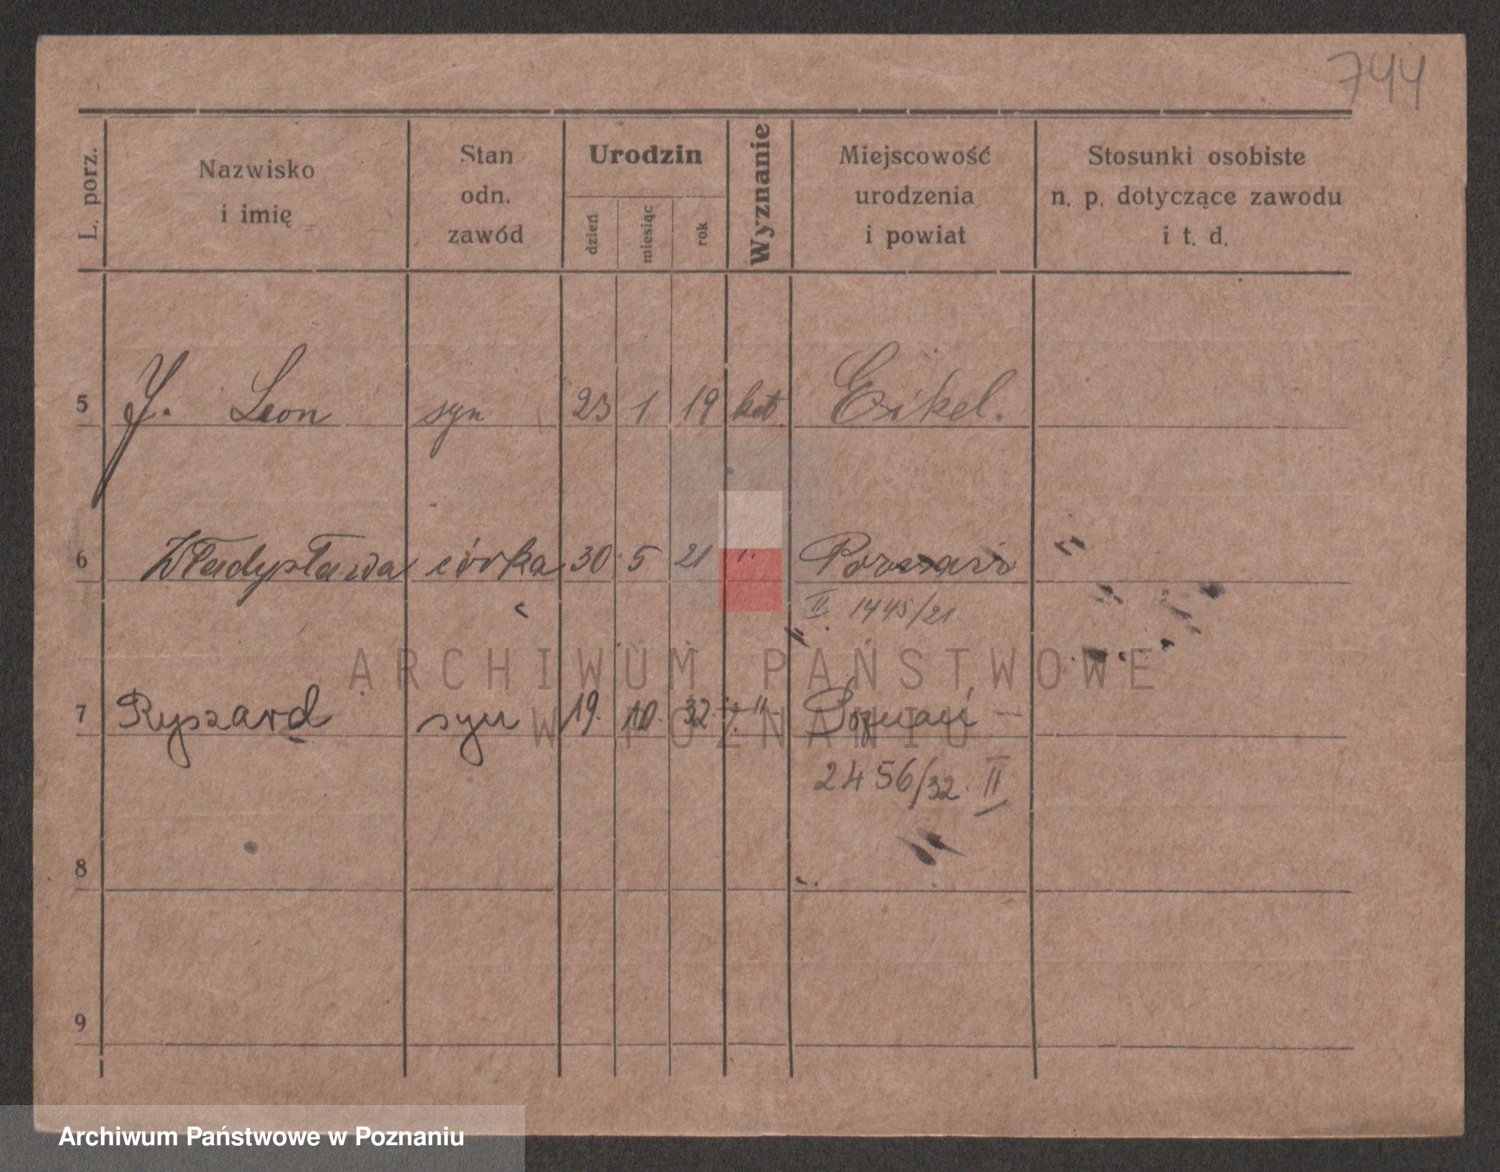 744
L. porz.
Nazwisko
i imię
Stan
odn.
zawód
Urodzin
dzień
miesiąc
rok
Wyznanie
Miejscowość
urodzenia
i powiat
Stosunki osobiste
n. p. dotyczące zawodu
i t. d.
5 Leon syn 23 1 19 kat. Eikel.
6 Władysława córka 30 5 21 Poznań
II. 1445/21
7 Ryszard syn 19. 10. 32 Poznań
2456/32. II
8
9
ARCHIWUM PAŃSTWOWE
W POZNANIU
Archiwum Państwowe w Poznaniu